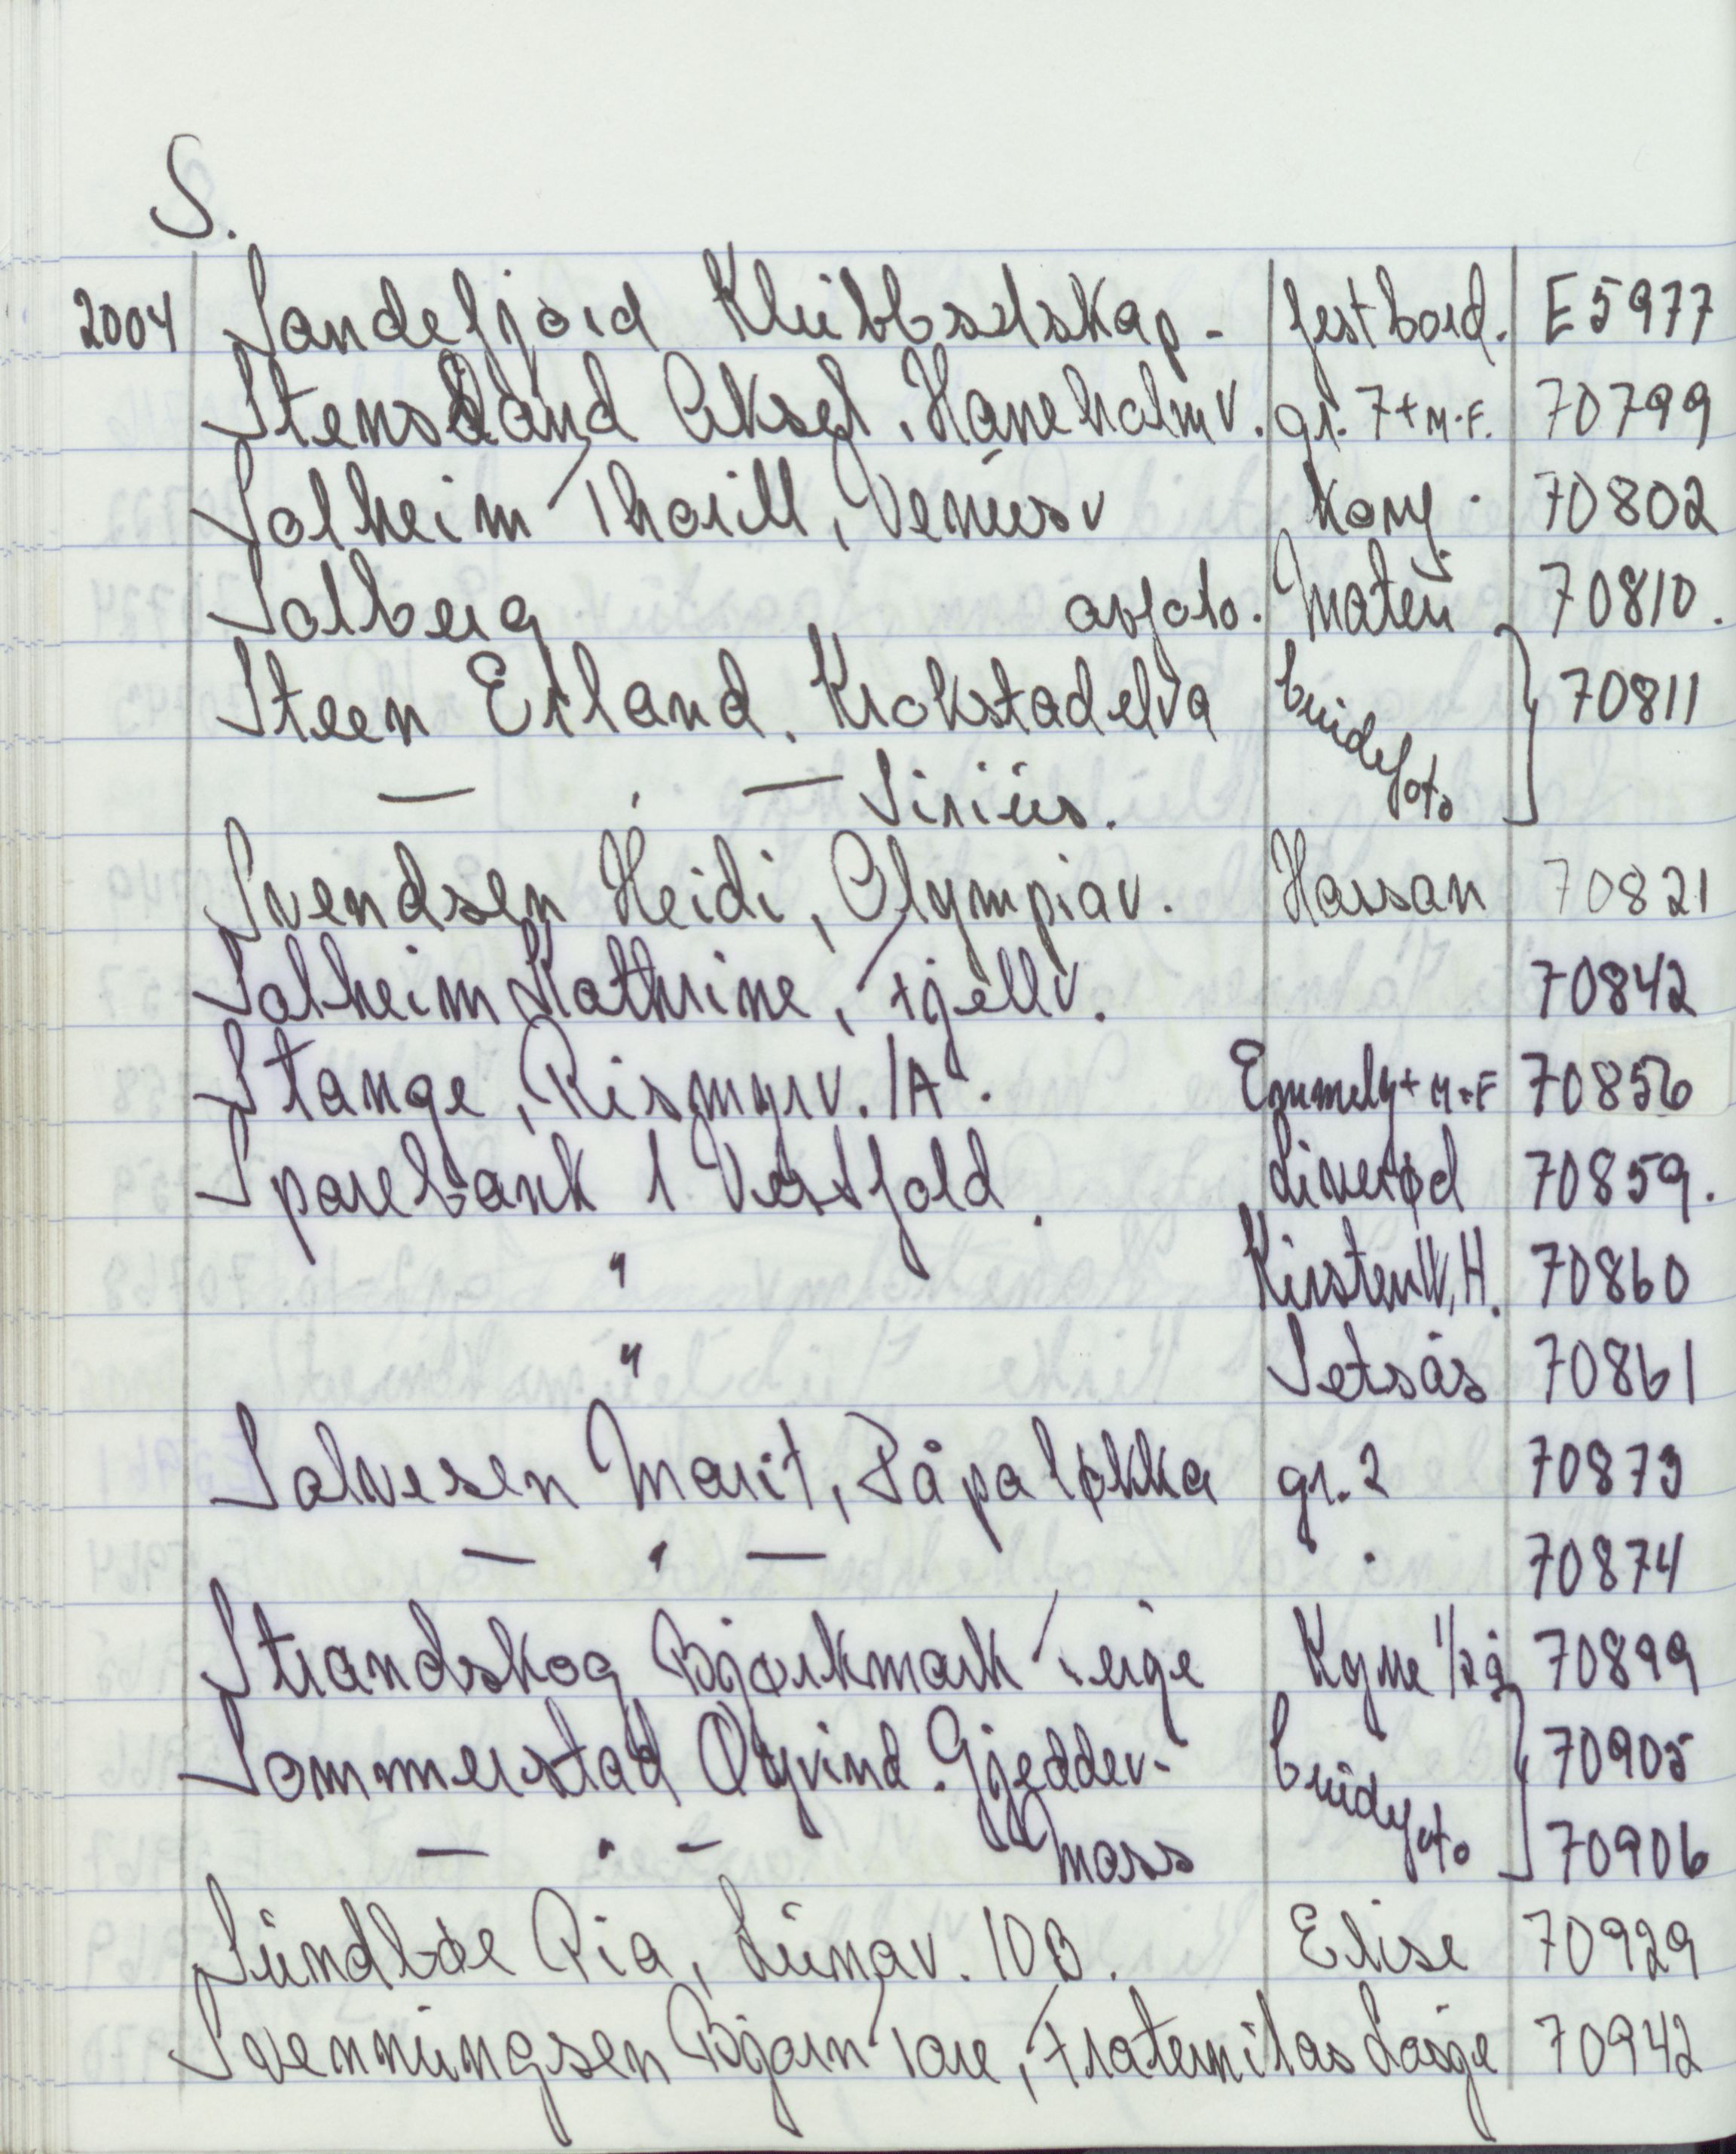 S.
2004 Sandefjord Klubbselskap - festbord. E5977
Stensland Aksel, Haneholmv. gr. 7+M.F. 70799
Solheim Thorill, Venusv konf. 70802
Solberg avfoto. Mateu 70810.
Steen Erland. Krokstadelva brudefoto 70811
— , — Sirius.
Svendsen Heidi, Olympiav. Hassan 70821
Solheim Kathrine, Fjellv. 70842
Stange, Rismyrv. 1A. Emmely + M+F 70856
Sparebank 1 Vestfold. Liverød 70859.
" Kirsten W.H. 70860
" Setsås 70861
Salvesen Marit, Påpaløkka gr. 2 70873
— " — . 70874
Strandskog Bjørkmark Terje Kyrre 1/2 å 70899
Sommerstad Øyvind. Gjeddev. brudefoto 70905
— " — Moss 70906
Sundbøe Pia, Lunav. 10B. Elise 70929
Svenningsen Bjørn Tore, Fraternitas Losje 70942